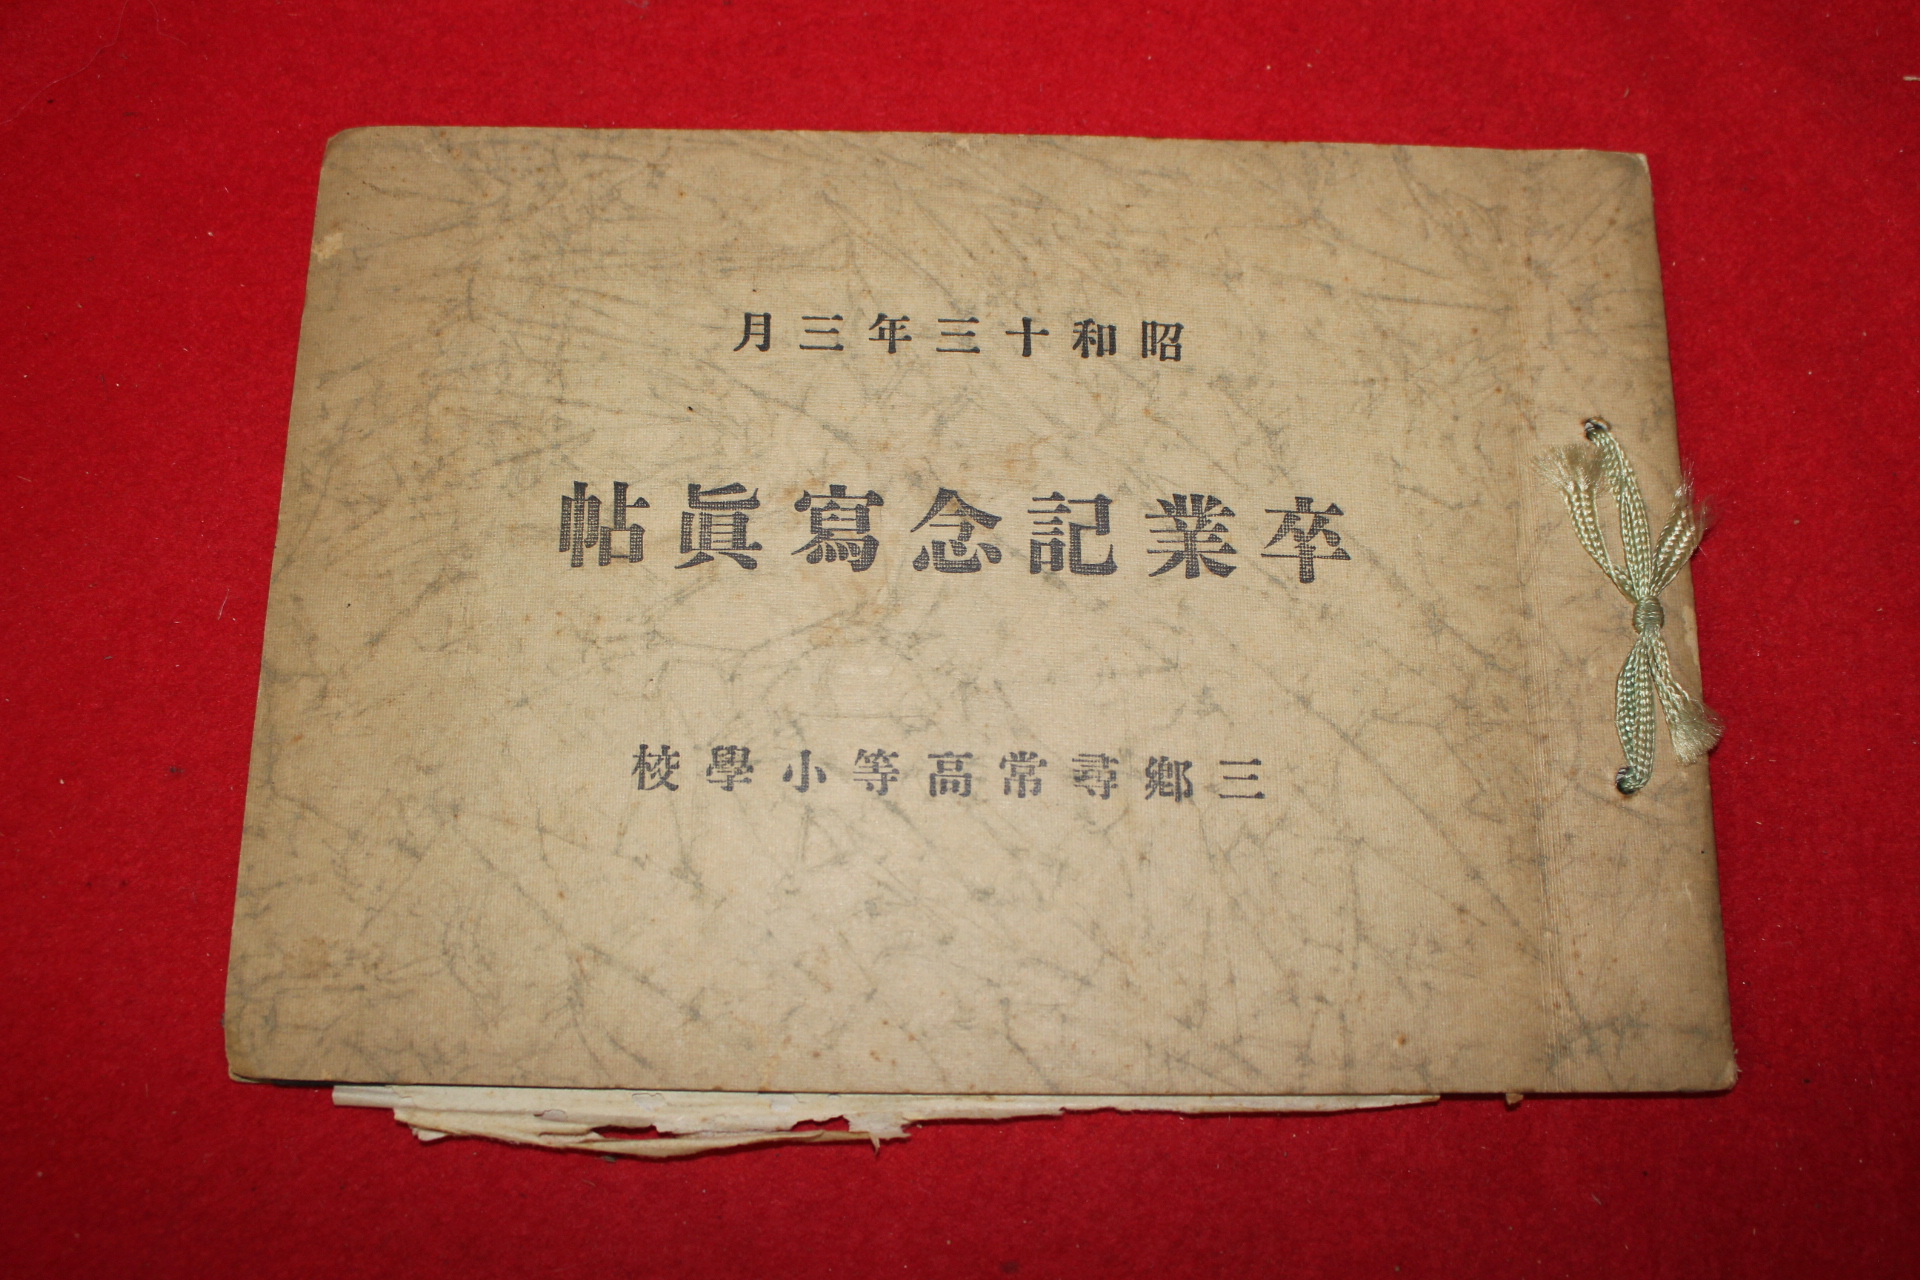 昭和十三年三月
卒業記念寫眞帖
三鄕尋常高等小學校